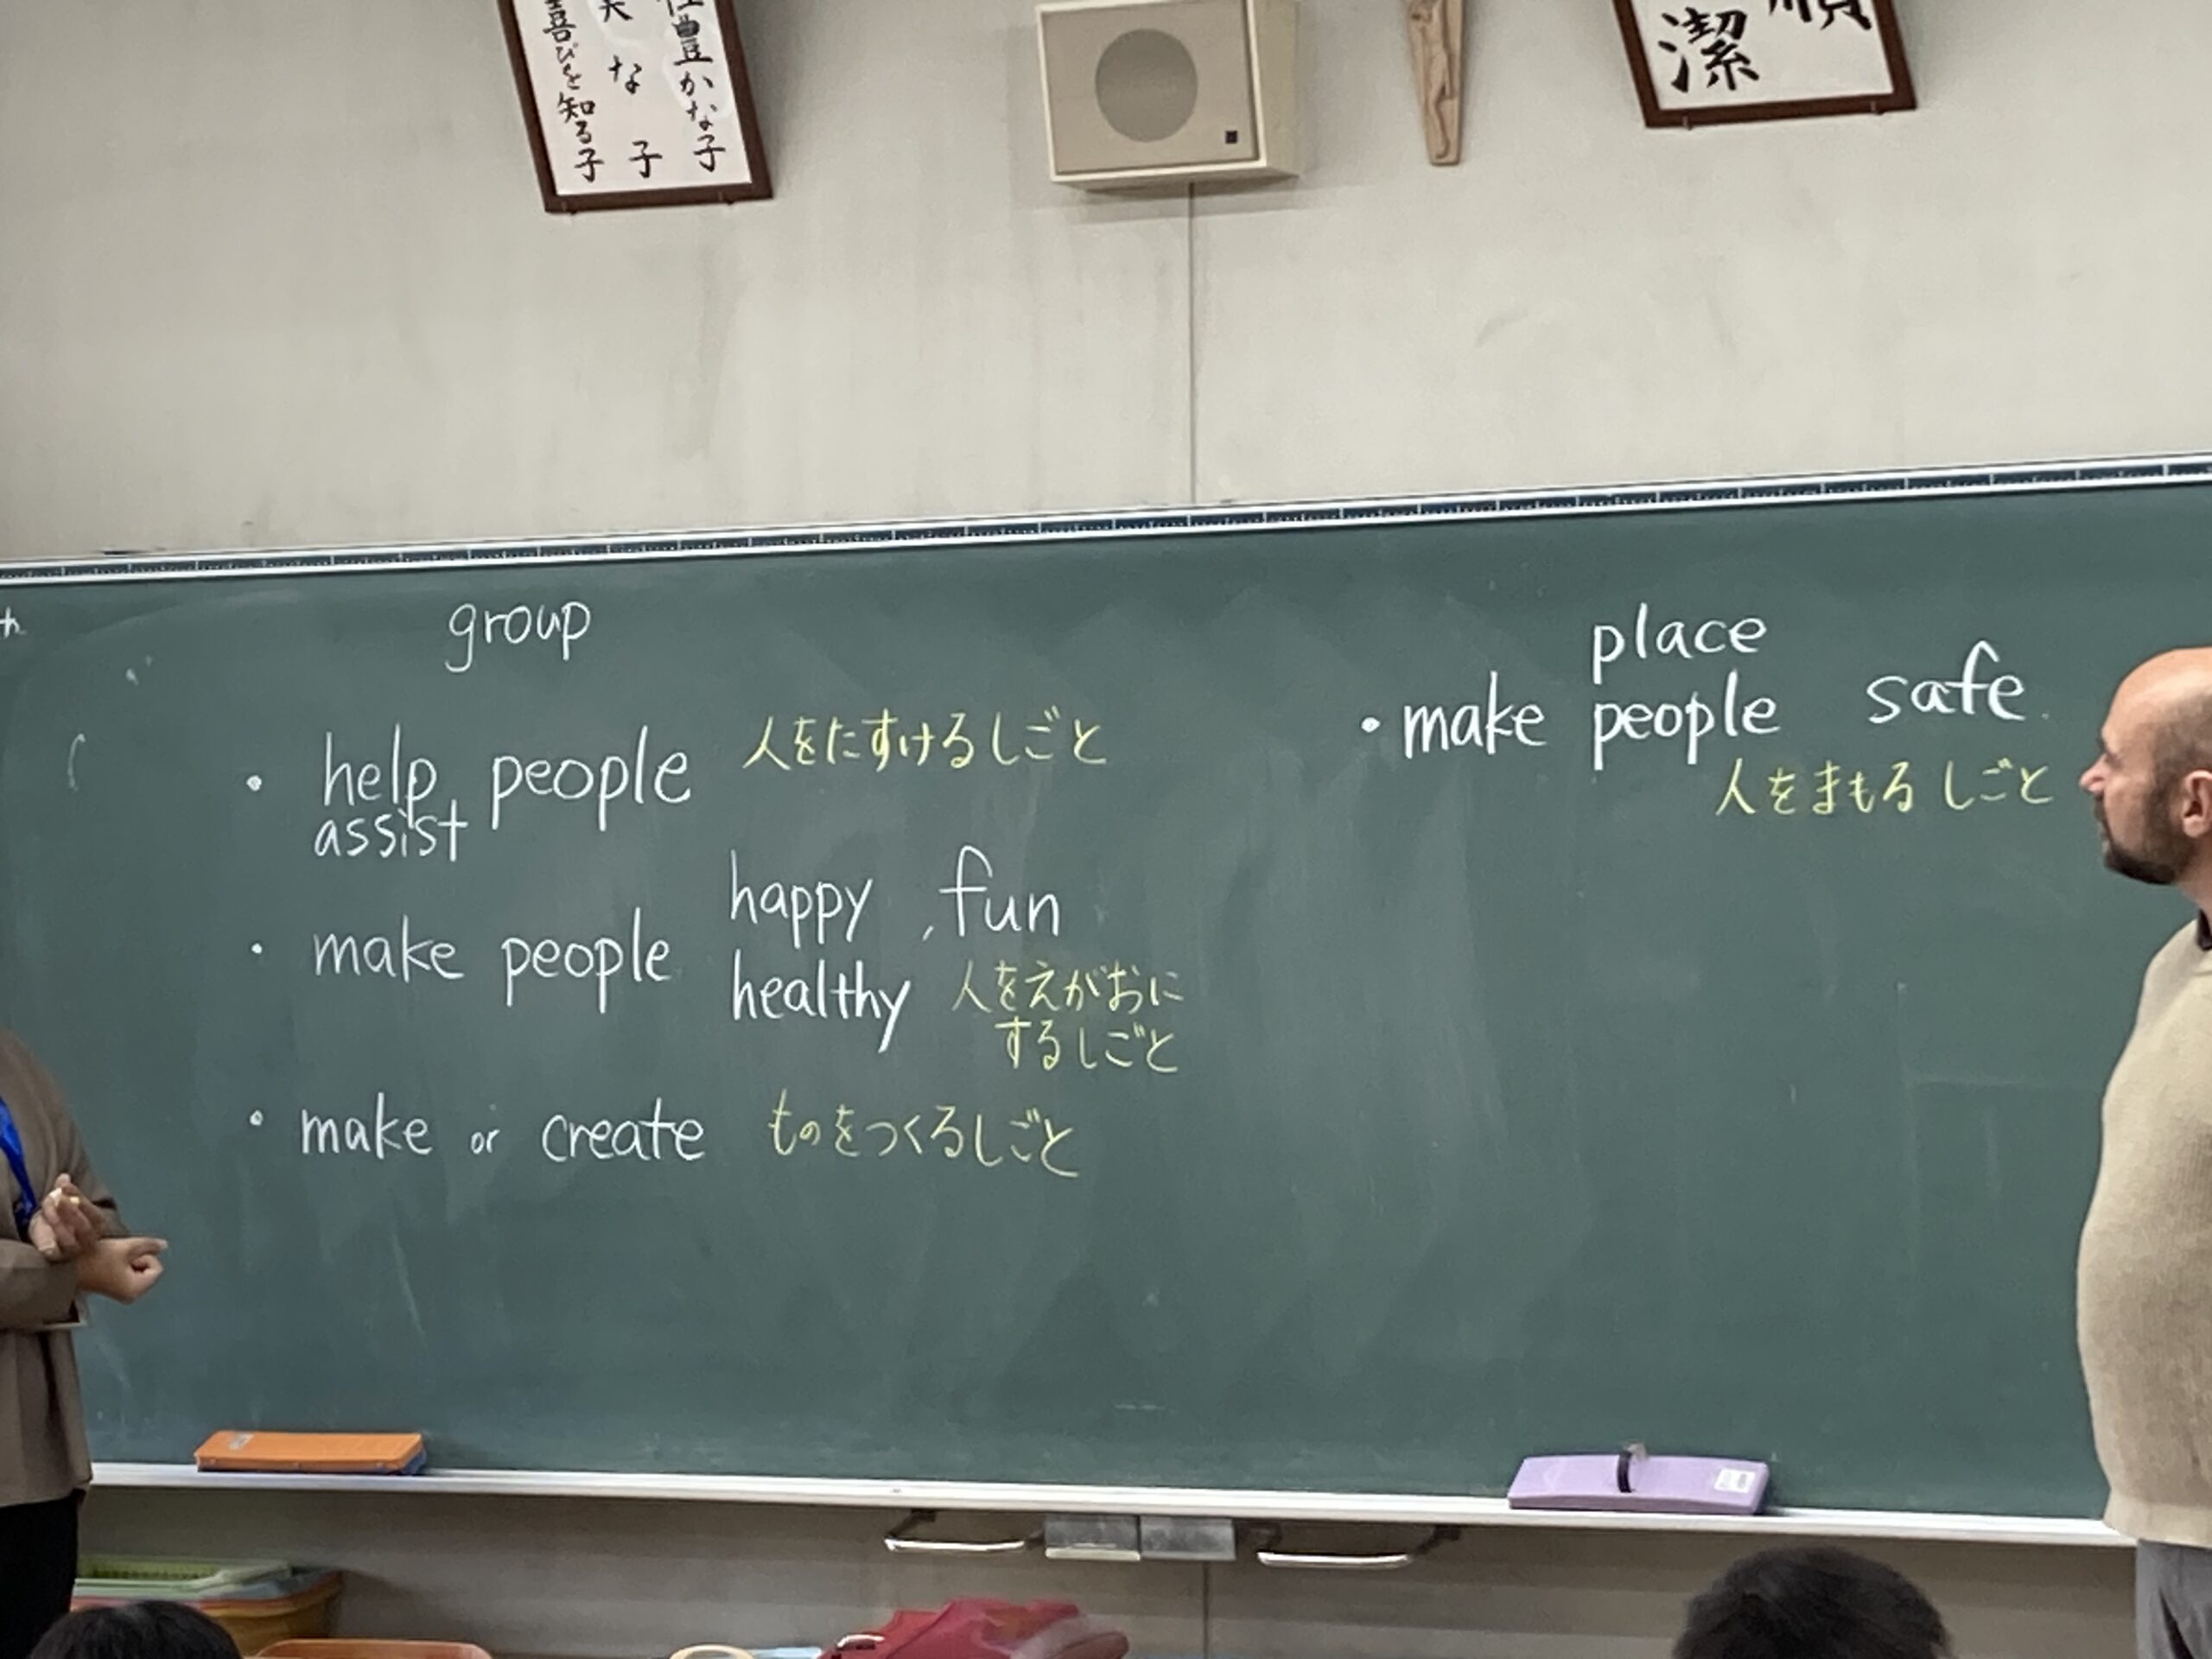 豊かな子
な子
喜びを知る子
潔
group
• help people 人をたすけるしごと
assist
happy, fun
• make people
healthy 人をえがおに
するしごと
• make or create ものをつくるしごと
place
• make people safe
人をまもるしごと